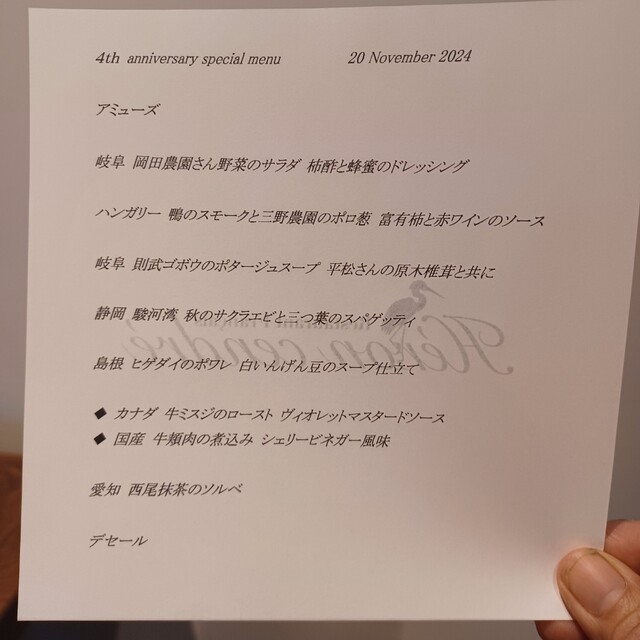 4th anniversary special menu 20 November 2024
アミューズ
岐阜 岡田農園さん野菜のサラダ 柿酢と蜂蜜のドレッシング
ハンガリー 鴨のスモークと三野農園のポロ葱 富有柿と赤ワインのソース
岐阜 則武ゴボウのポタージュスープ 平松さんの原木椎茸と共に
静岡 駿河湾 秋のサクラエビと三つ葉のスパゲッティ
Restaurant Français
Héron cendré
島根 ヒゲダイのポワレ 白いんげん豆のスープ仕立て
◆ カナダ 牛ミスジのロースト ヴィオレットマスタードソース
◆ 国産 牛頬肉の煮込み シェリービネガー風味
愛知 西尾抹茶のソルベ
デセール